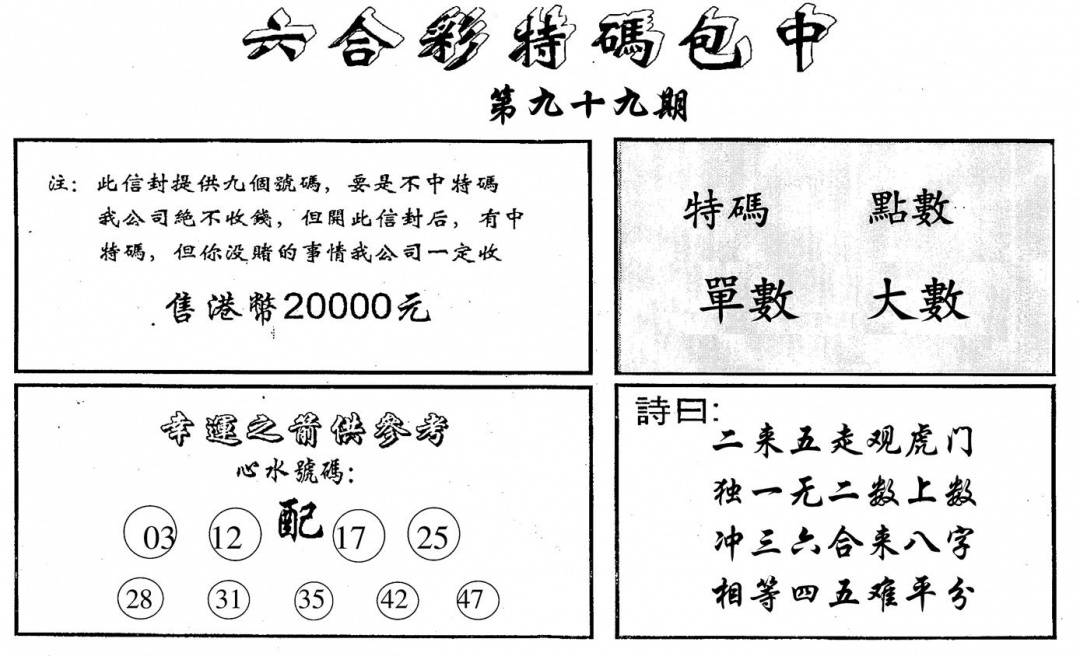 六合彩特碼包中
第九十九期
注：此信封提供九個號碼，要是不中特碼
我公司絕不收錢，但開此信封后，有中
特碼，但你没賭的事情我公司一定收
售港幣20000元
特碼 點數
單數 大數
幸運之箭供參考
心水號碼：
03 12 配 17 25
28 31 35 42 47
詩曰：
二来五走观虎门
独一无二数上数
冲三六合来八字
相等四五难平分